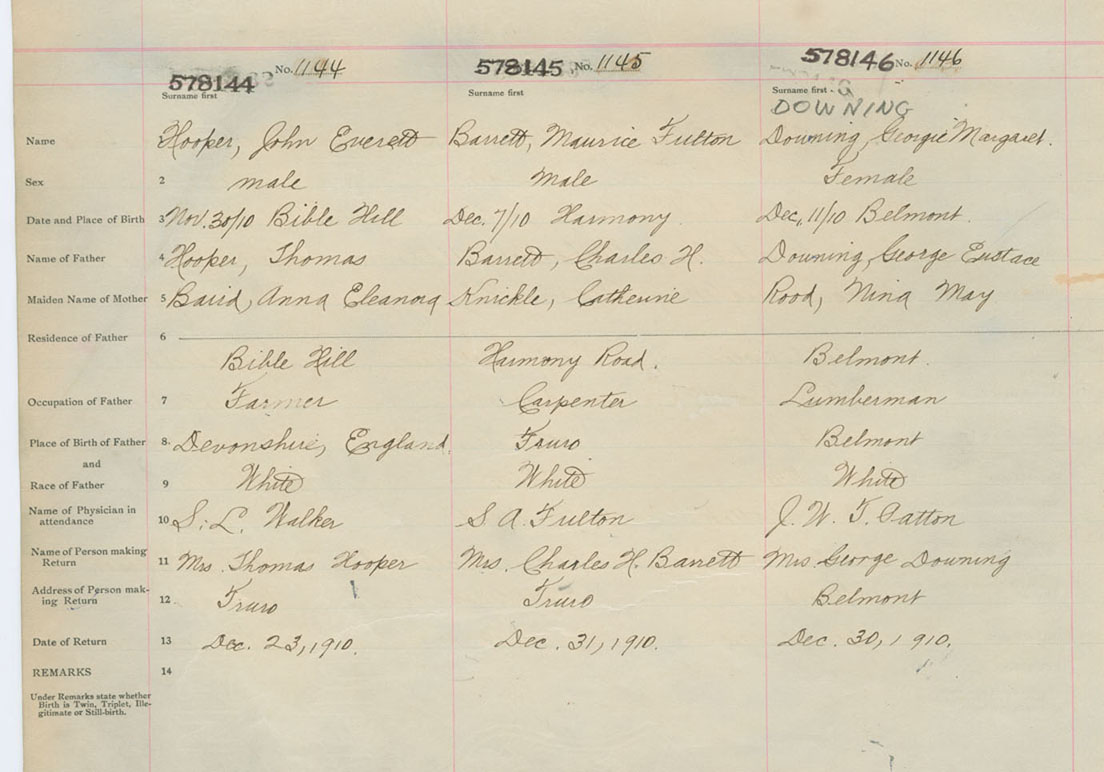 578144 No. 1144 578145 No. 1145 578146 No. 1146
Surname first Surname first Surname first
DOWNING
Name Hooper, John Everett Barrett, Maurice Fulton Downing, Georgie Margaret.
Sex 2 male Male Female
Date and Place of Birth 3 Nov. 30/10 Bible Hill Dec. 7/10 Harmony Dec. 11/10 Belmont.
Name of Father 4 Hooper, Thomas Barrett, Charles H. Downing, George Eustace
Maiden Name of Mother 5 Baird, Anna Eleanora Knickle, Catherine Rood, Nina May
Residence of Father 6
Bible Hill Harmony Road. Belmont.
Occupation of Father 7 Farmer Carpenter Lumberman
Place of Birth of Father 8. Devonshire, England. Truro Belmont
and
Race of Father 9 White White White
Name of Physician in
attendance 10 S. L. Walker S A. Fulton J. W. T. Patton
Name of Person making
Return 11 Mrs. Thomas Hooper Mrs. Charles H. Barrett Mrs. George Downing
Address of Person mak-
ing Return 12 Truro Truro Belmont
Date of Return 13 Dec. 23, 1910. Dec. 31, 1910. Dec. 30, 1910.
REMARKS 14
Under Remarks state whether
Birth is Twin, Triplet, Ille-
gitimate or Still-birth.